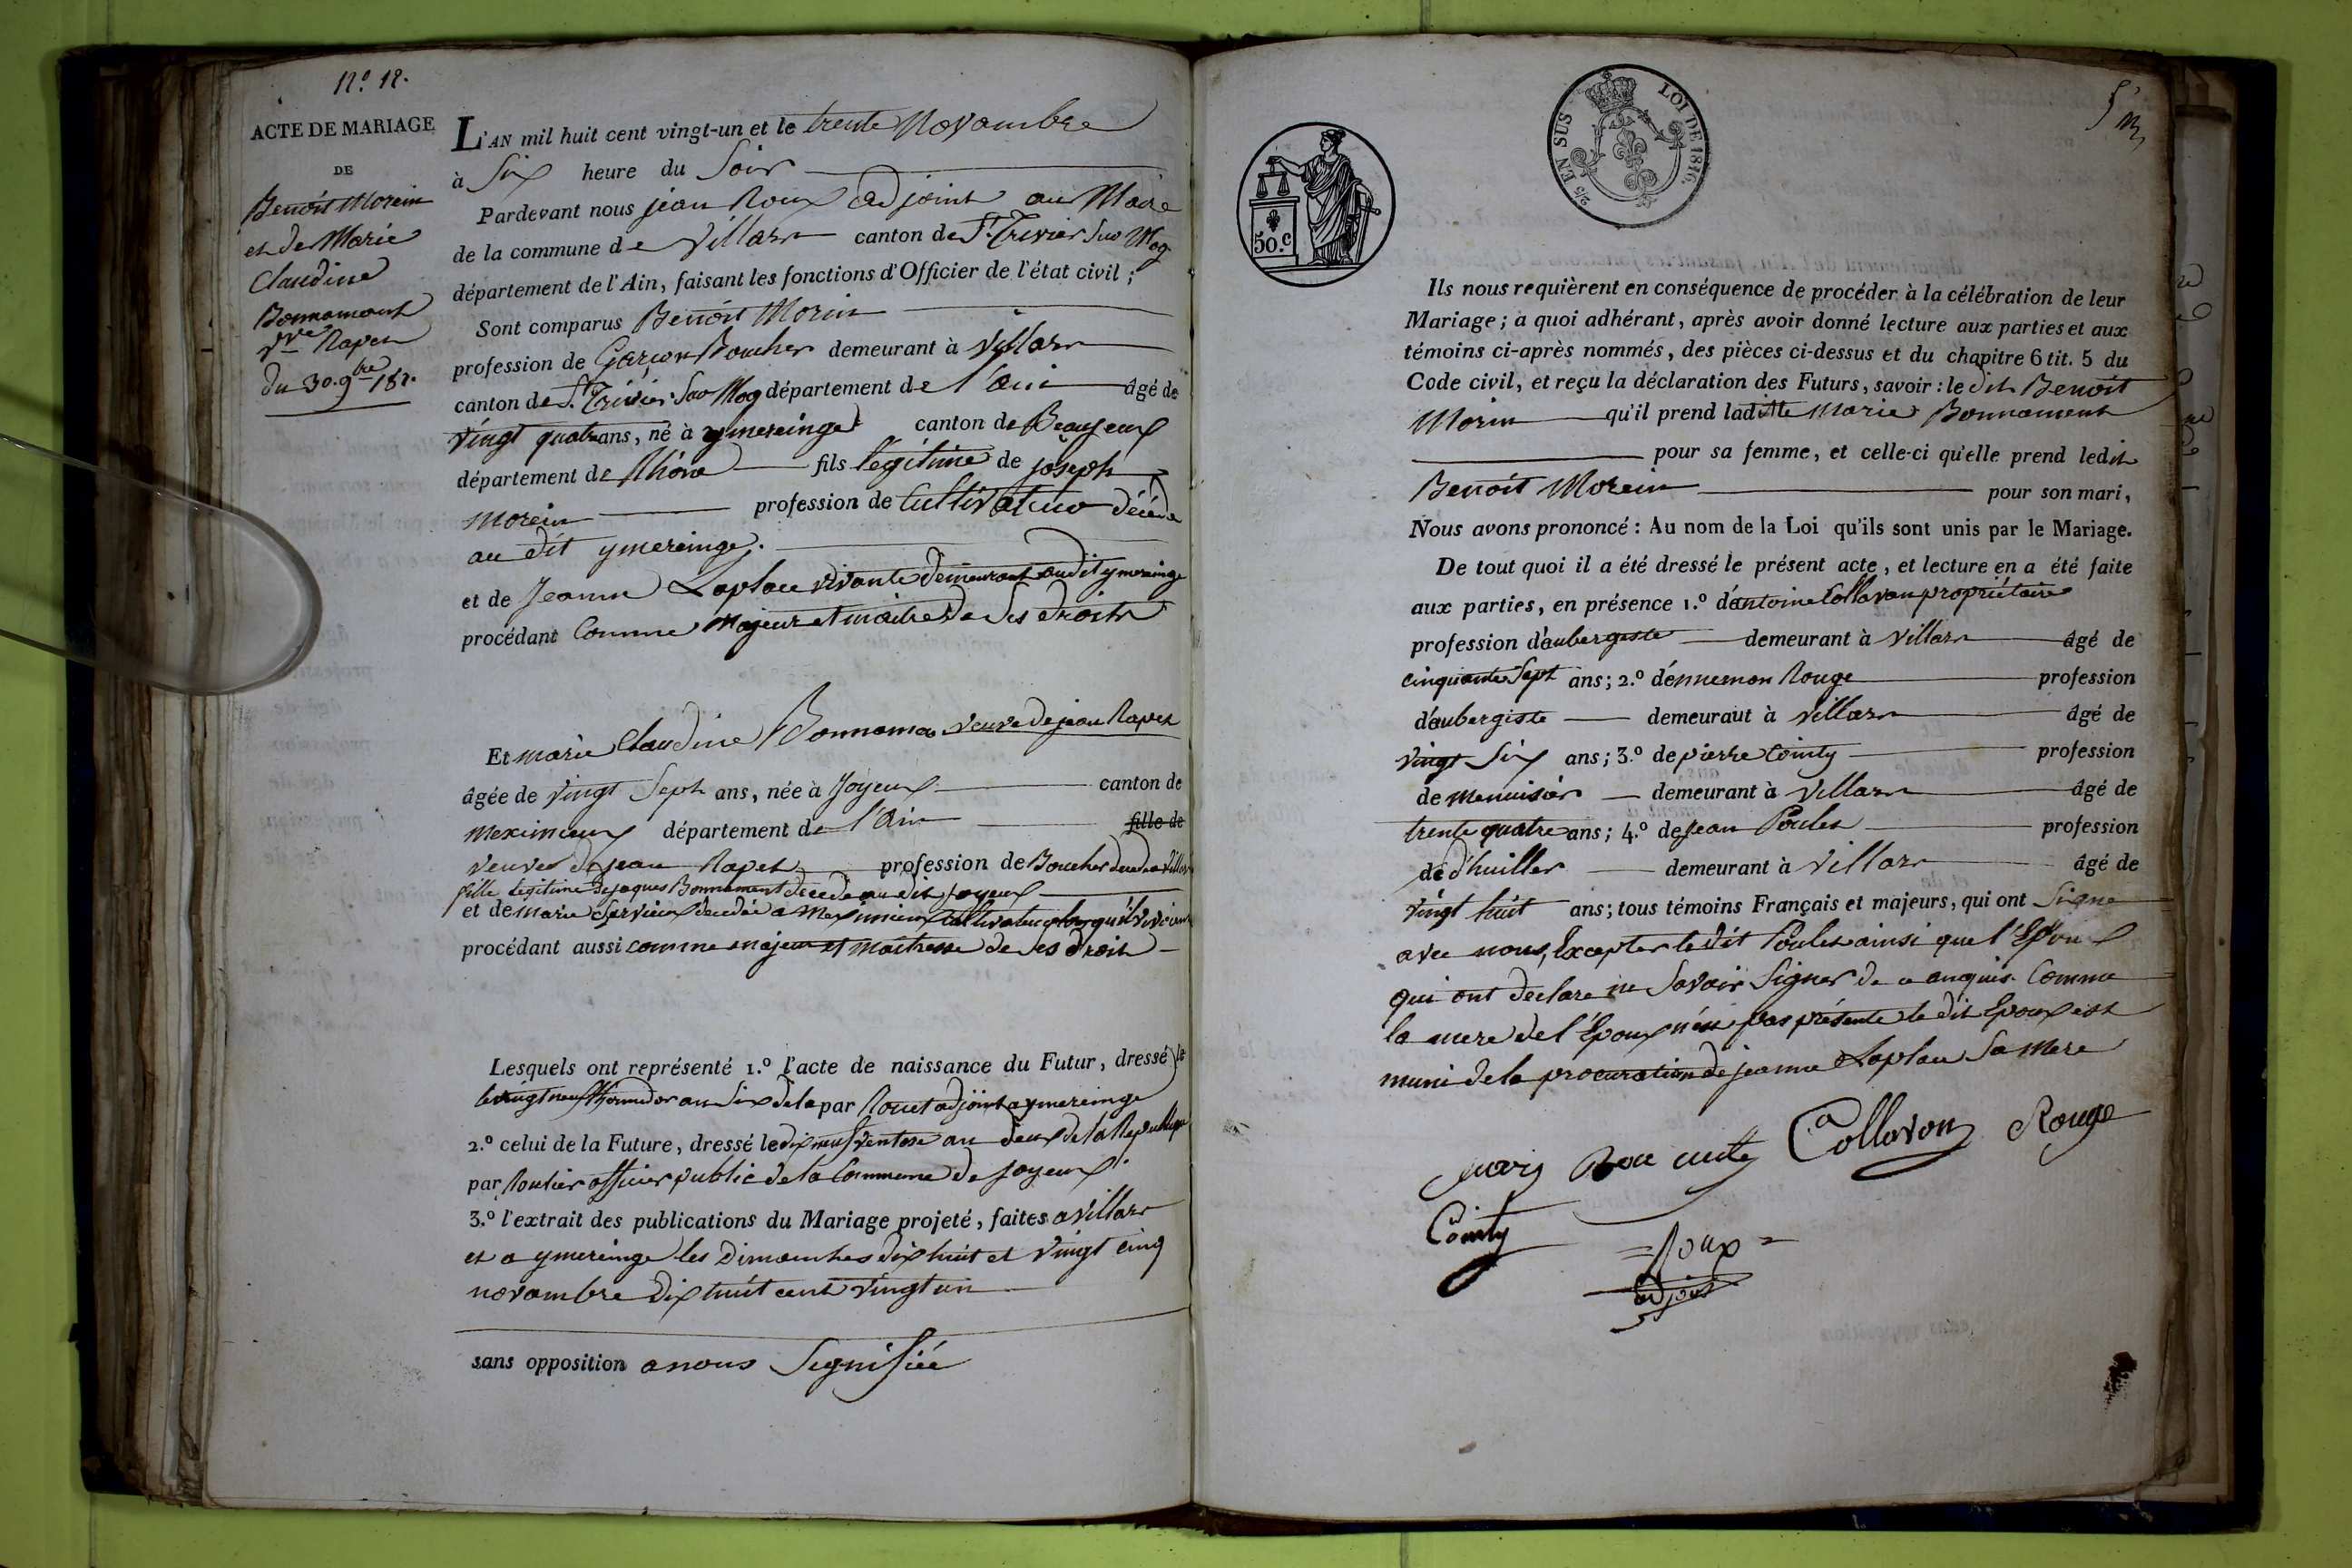 N.º 12.
ACTE DE MARIAGE
DE
Benoît Morein
et de Marie
Claudine
Bonnamant
v.ve Rapet
du 30. 9bre 182.
L'AN mil huit cent vingt-un et le trente Novambre
à Six heure du Soir
Pardevant nous jean Roux adjoint au Maire
de la commune de Villars canton de St. Trivier Sur Mog
département de l'Ain, faisant les fonctions d'Officier de l'état civil;
Sont comparus Benoit Morin
profession de Garçon Boucher demeurant à Villars
canton de St. Trivier Sur Mog département de l'ain âgé de
vingt quatre ans, né à ymereinge canton de Beaujeux
département de Rhône fils legitime de joseph
Morein profession de Cultivateur décédé
au dit ymereinge.
et de Jeanne Laplace vivante demeurant audit ymereinge
procédant Comme Majeur et maitre de Ses droits
Et marie Claudine Bonnaman veuve de jean Rapet
âgée de vingt Sept ans, née à Joyeux canton de
meximieux département de l'Ain fille de
veuve de jean Rapet profession de Boucher
fille legitime de jaques Bonnament decedé au dit joyeux
et de marie Servieux decedée a Meximieux Cultivateur lorqu'il vivoient
procédant aussi comme majeur et maitresse de Ses droit
Lesquels ont représenté 1.º l'acte de naissance du Futur, dressé le
le vingt neuf thermidor an Six dela par Rouet adjoint a ymereinge
2.º celui de la Future, dressé le dix neuf ventose an deux de la Republique
par Roulier officier public de la Commune de joyeux.
3.º l'extrait des publications du Mariage projeté, faites a villars
et a ymereinge les Dimanches dix huit et vingt cinq
novambre dix huit cent vingt un
sans opposition a nous Segnifiée
50.c
2/5 EN SUS
LOI DE 1816.
Ils nous requièrent en conséquence de procéder à la célébration de leur
Mariage; a quoi adhérant, après avoir donné lecture aux parties et aux
témoins ci-après nommés, des pièces ci-dessus et du chapitre 6 tit. 5 du
Code civil, et reçu la déclaration des Futurs, savoir: le dit Benoit
Morin qu'il prend laditte Marie Bonnament
pour sa femme, et celle-ci qu'elle prend ledit
Benoit Morein pour son mari,
Nous avons prononcé: Au nom de la Loi qu'ils sont unis par le Mariage.
De tout quoi il a été dressé le présent acte, et lecture en a été faite
aux parties, en présence 1.º d'antoine Collavon propriétaire
profession d'aubergiste demeurant à villars âgé de
cinquante Sept ans; 2.º d'ennemon Rouge profession
d'aubergiste demeuraut à villars âgé de
vingt Six ans; 3.º de pierre Cointy profession
de menuisier demeurant à Villars âgé de
trente quatre ans; 4.º de Jean Poulet profession
de d'huillier demeurant à Villars âgé de
vingt huit ans; tous témoins Français et majeurs, qui ont Signe
avec nous, Excepter le dit Poulet ainsi que l'Epoux
qui ont declare ne Savoir Signer de ce anquis. Comme
la mere de l'Epoux n'est pas présente le dit Epoux est
muni de la procuration de jeanne Laplace Sa Mere
Collavon Rouge
Cointy
= Roux =
adjoint